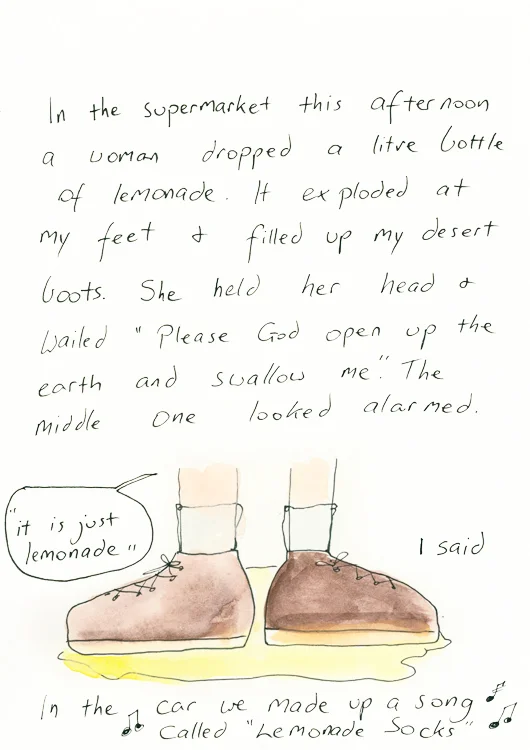 In the supermarket this afternoon
a woman dropped a litre bottle
of lemonade. It exploded at
my feet & filled up my desert
boots. She held her head &
wailed "Please God open up the
earth and swallow me". The
middle one looked alarmed.
"it is just
lemonade"
I said
In the car we made up a song
called "Lemonade Socks"